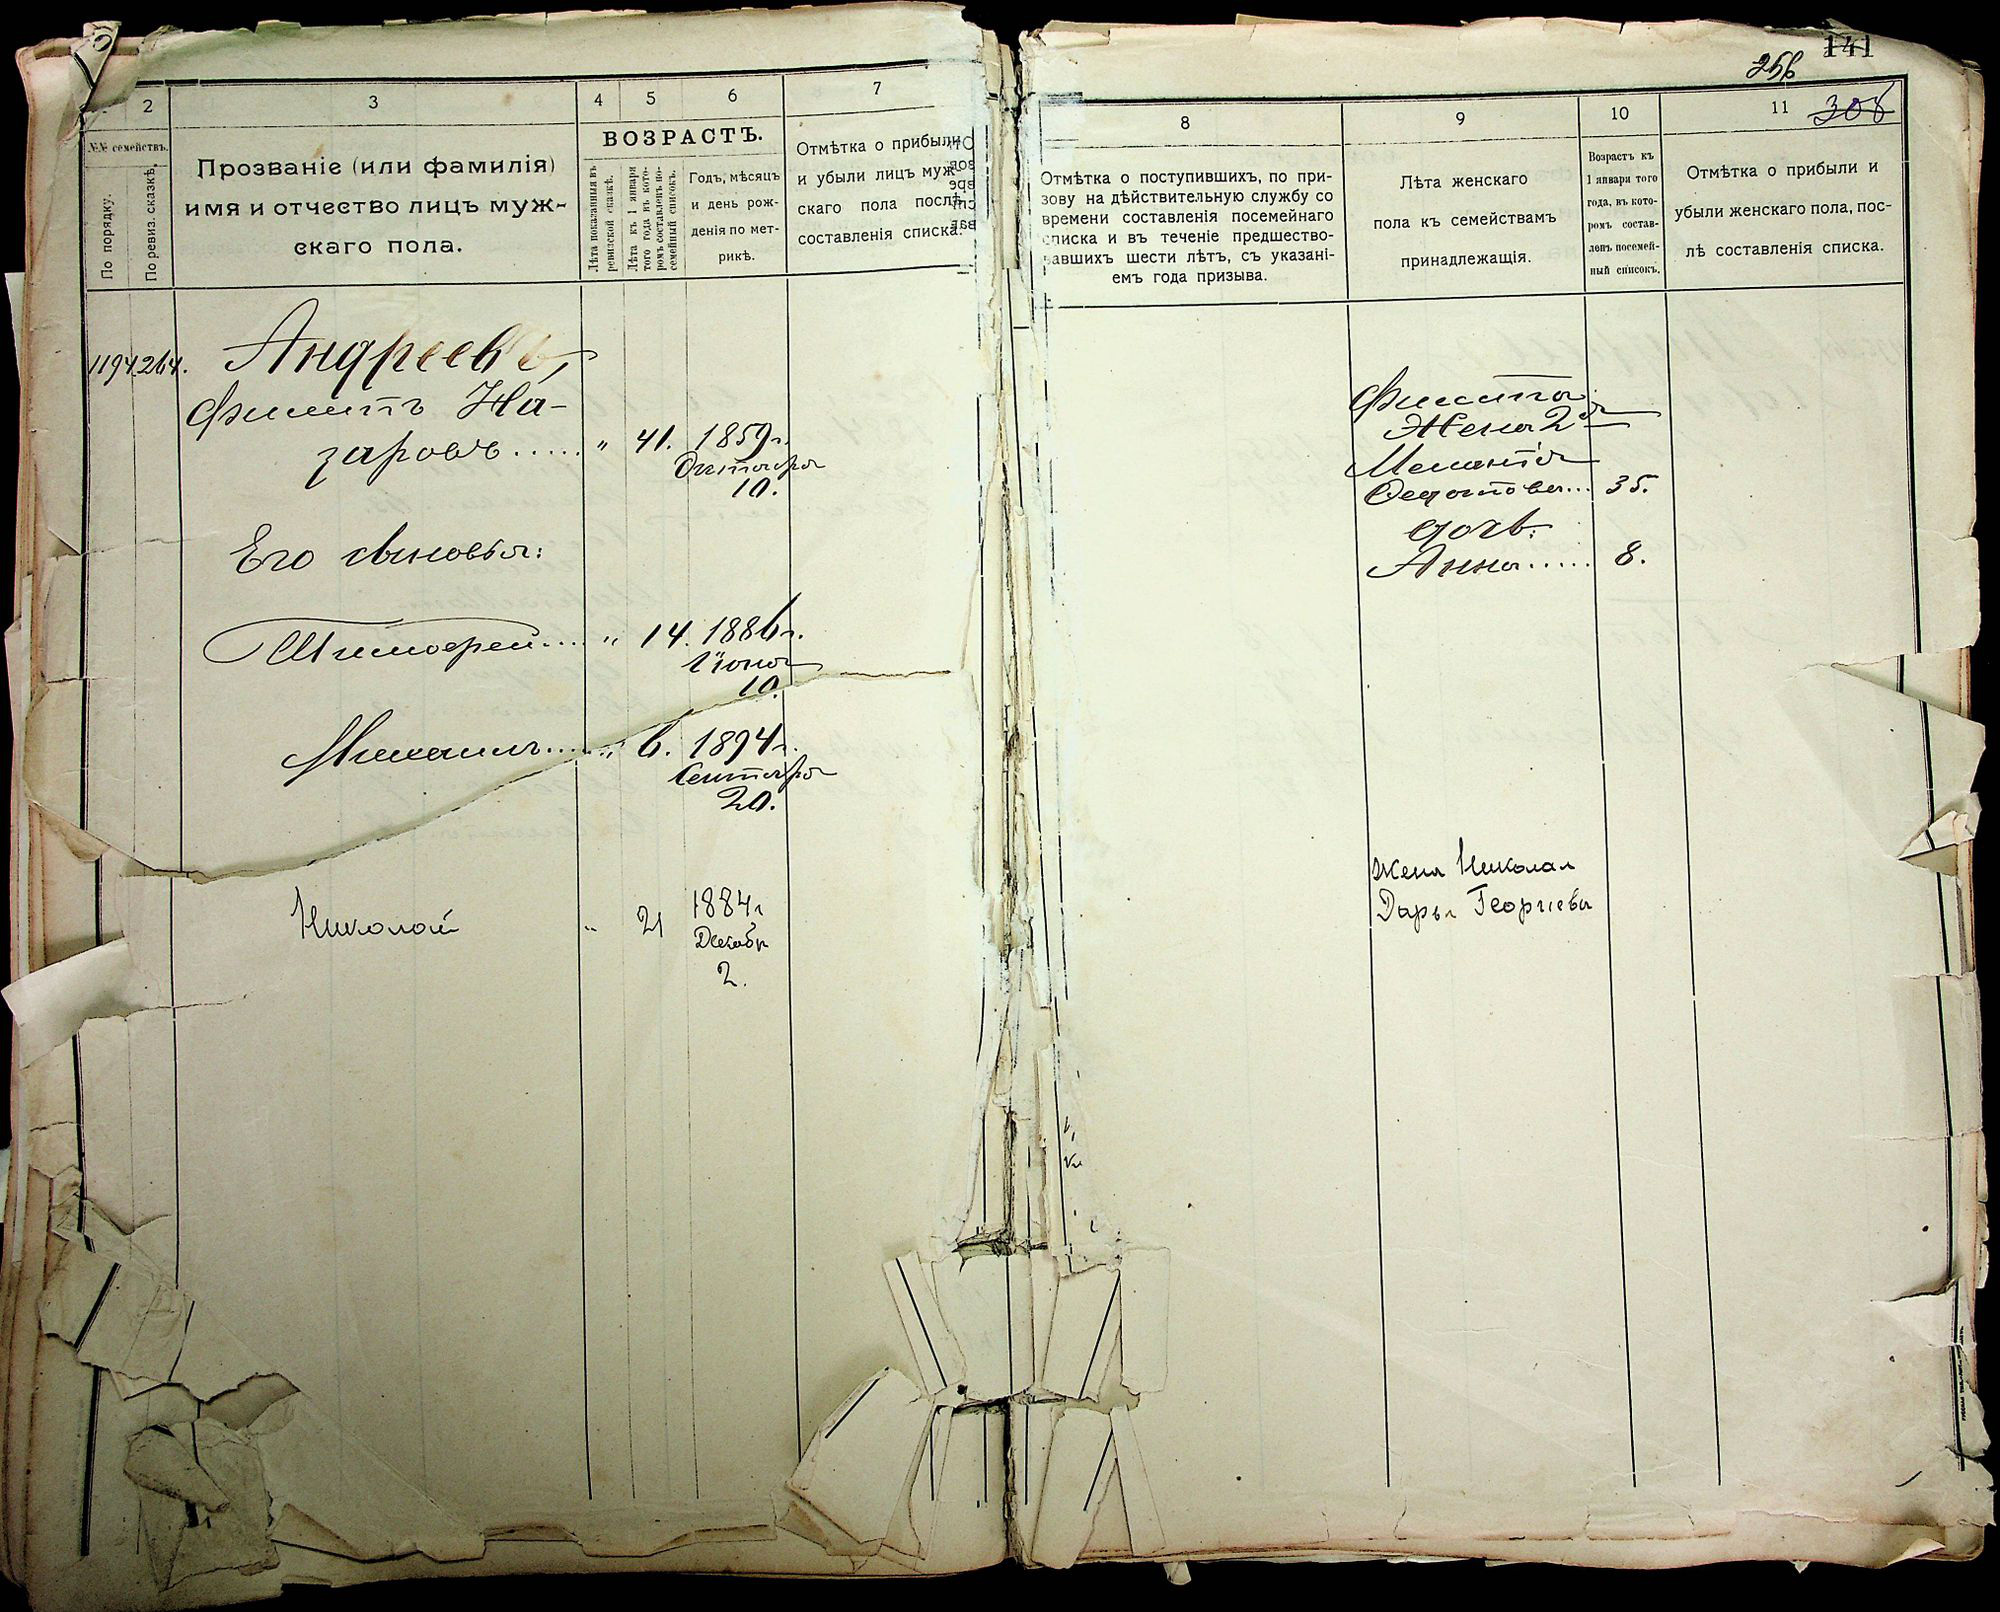 141
256
308
2
3
4
5
6
7
№№ семействъ.
По порядку.
По ревиз. сказкѣ.
Прозваніе (или фамилія)
имя и отчество лицъ муж-
скаго пола.
ВОЗРАСТЪ.
Лѣта показанныя въ
ревизской сказкѣ.
Лѣта къ 1 января
того года въ кото-
ромъ составленъ по-
семейный списокъ.
Годъ, мѣсяцъ
и день рож-
денія по мет-
рикѣ.
Отмѣтка о прибыли
и убыли лицъ муж-
скаго пола послѣ
составленія списка.
1194. 264.
Андреевъ,
Филиппъ На-
заровъ..... " 41. 1859 г.
Октября
10.
Его сыновья:
Тимофей.... " 14. 1886 г.
Іюня
10.
Михаилъ...... " 6. 1894 г.
Сентября
20.
Николай " 21 1884 г
Декабр
2.
8
9
10
11
Отмѣтка о поступившихъ, по при-
зову на дѣйствительную службу со
времени составленія посемейнаго
списка и въ теченіе предшество-
вавшихъ шести лѣтъ, съ указані-
емъ года призыва.
Лѣта женскаго
пола къ семействамъ
принадлежащія.
Возрастъ къ
1 января того
года, въ кото-
ромъ состав-
ленъ посемей-
ный списокъ.
Отмѣтка о прибыли и
убыли женскаго пола, пос-
лѣ составленія списка.
Филиппа
Жена 2я
Меланія
Федотова... 35.
дочь:
Анна..... 8.
Жена Николая
Дарья Георгиева